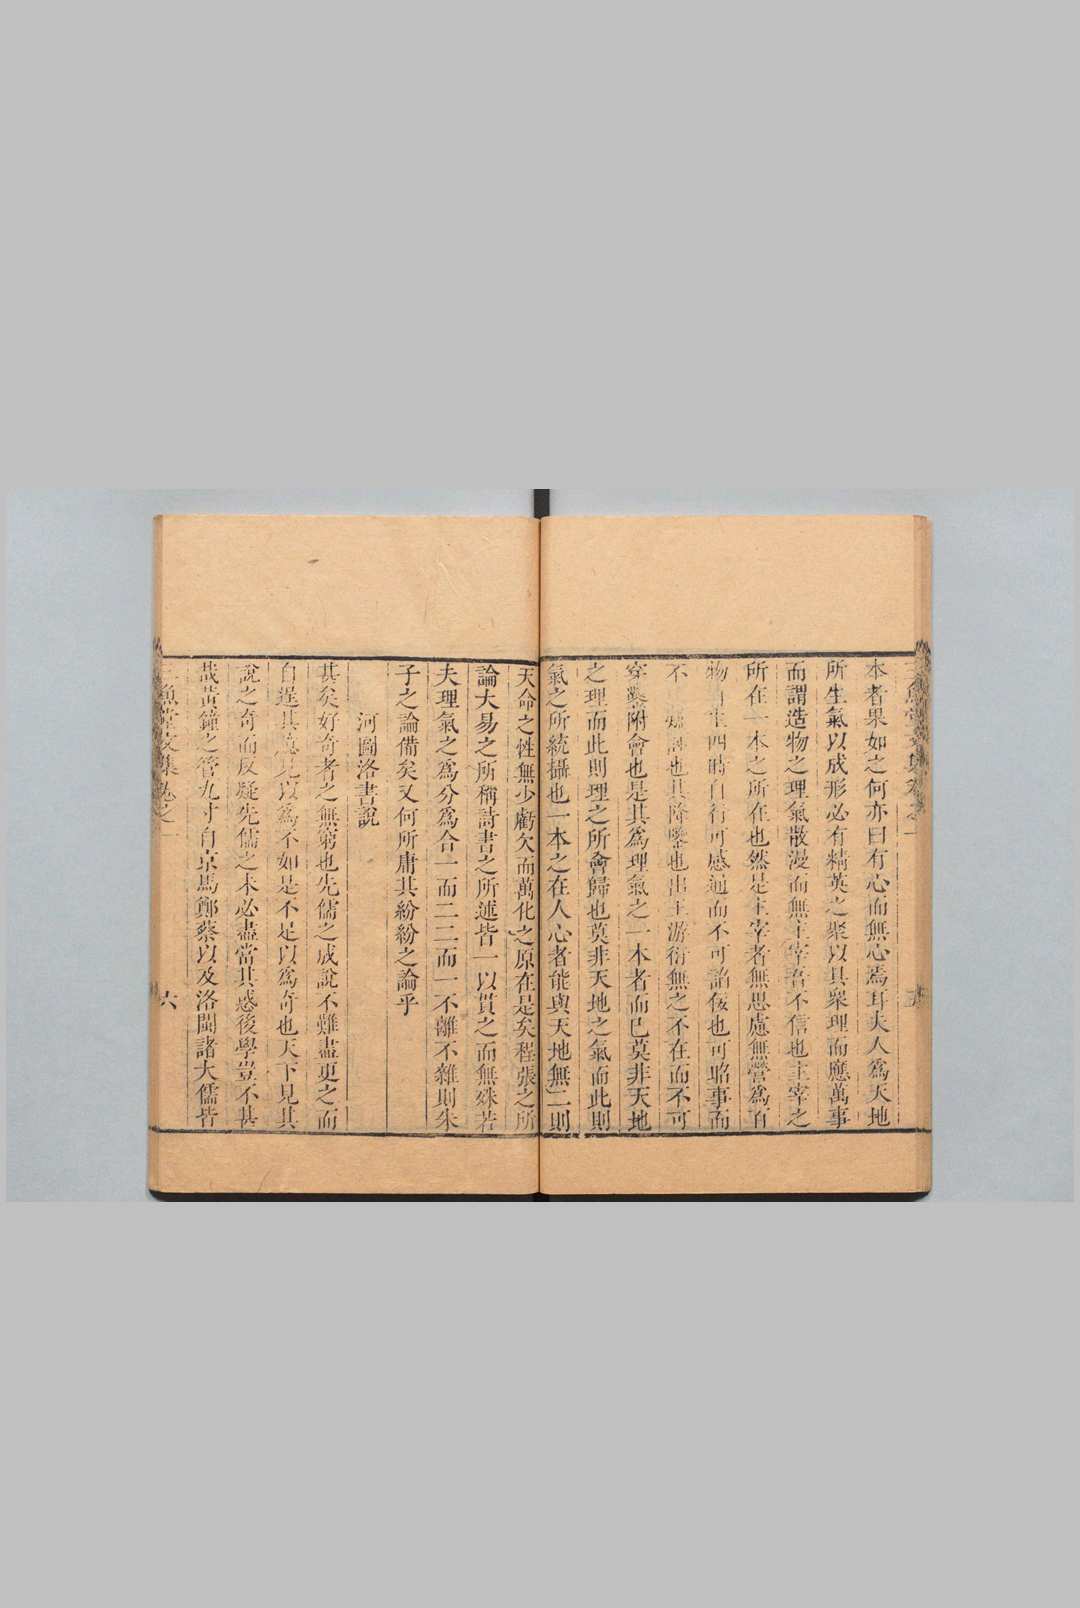 本者果如之何亦曰有心而無心焉耳夫人爲天地
所生氣以成形必有精英之聚以具衆理而應萬事
而謂造物之理氣散漫而無主宰吾不信也主宰之
所在一本之所在也然是主宰者無思慮無營爲百
物自生四時自行可感通而不可諂佞也可昭事而
不可也其降鑒也出王游衍無之不在而不可
穿鑿附會也是其爲理氣之一本者而已莫非天地
之理而此則理之所會歸也莫非天地之氣而此則
氣之所統攝也一本之在人心者能與天地無二則
天命之性無少虧欠而萬化之原在是矣程張之所
論大易之所稱詩書之所述皆一以貫之而無殊若
夫理氣之爲分爲合一而二二而一不離不雜則朱
子之論備矣又何所庸其紛紛之論乎
河圖洛書說
甚矣好奇者之無窮也先儒之成說不難盡更之而
自逞其意見以爲不如是不足以爲奇也天下見其
說之奇而反疑先儒之未必盡當其惑後學豈不甚
哉黃鐘之管九寸自京馬鄭蔡以及洛閩諸大儒皆
三魚堂文集卷之一
六